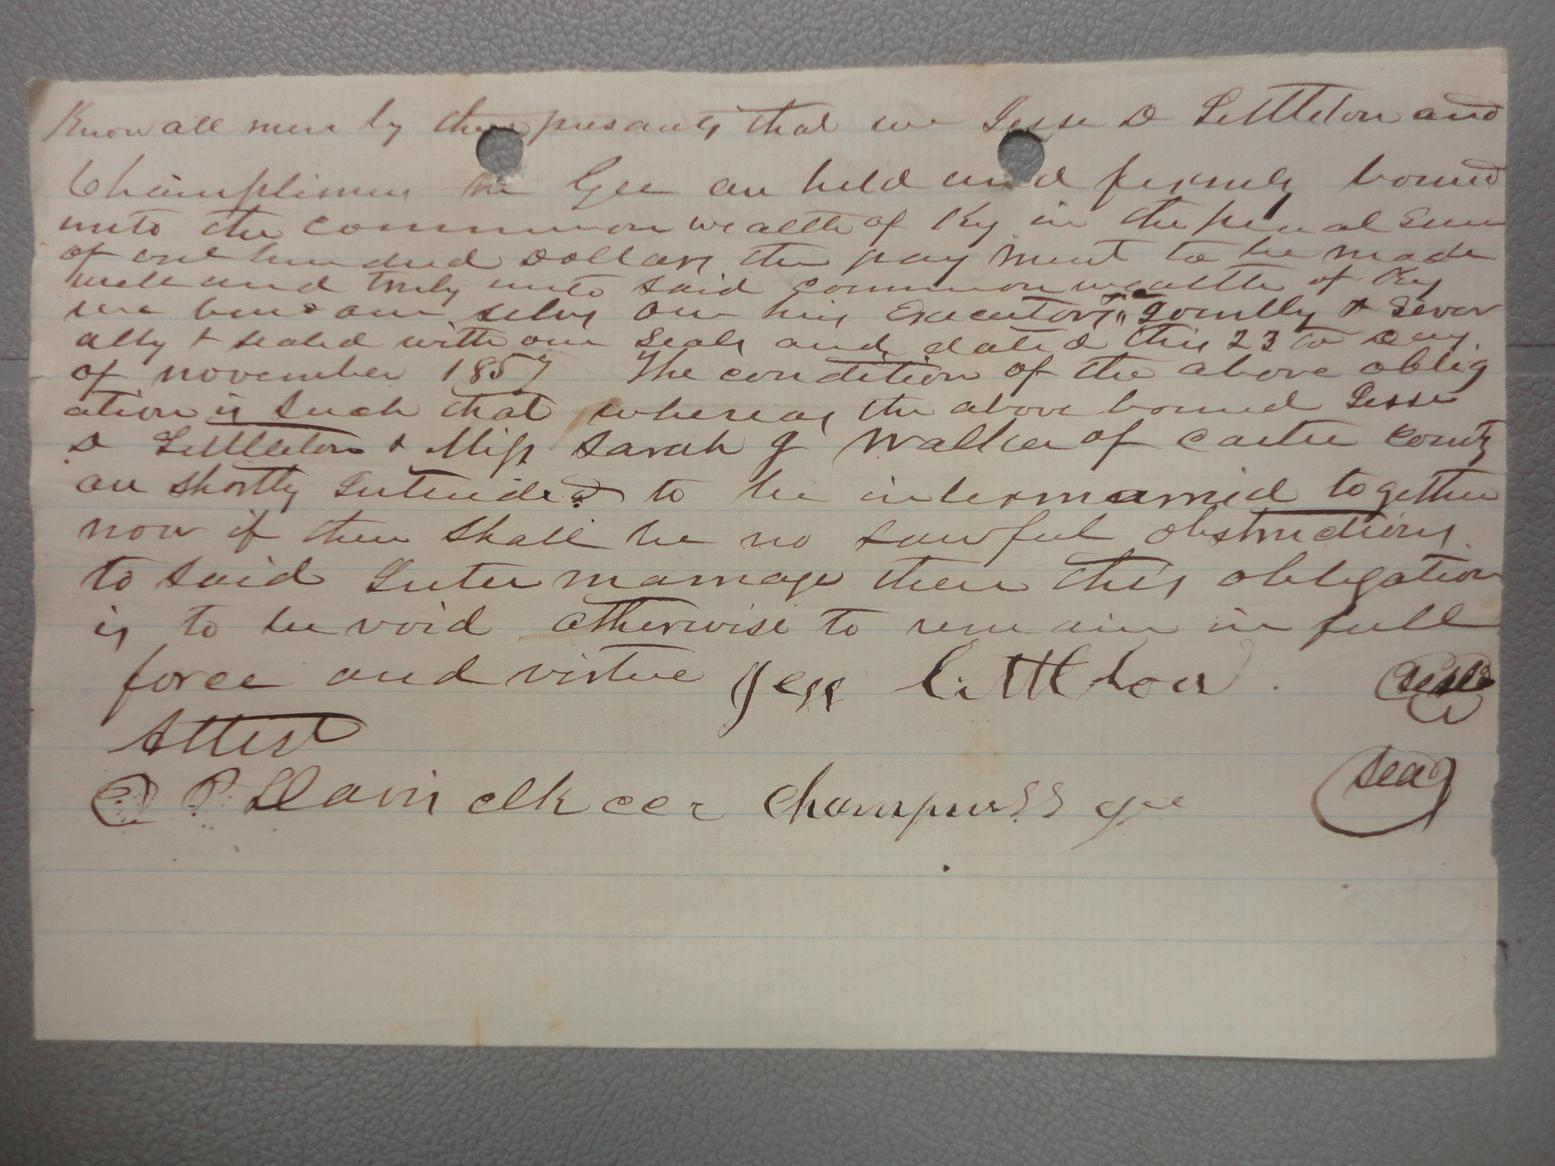 Know all men by these presants that we Jesse D Littleton and
Champlimen Mc Gee are held and firmly bound
unto the common wealth of Ky in the penal sum
of one hundred Dollars the pay ment to be made
well and truly unto said common wealth of Ky
we bind our selvs our hirs Executors jointly & sever
ally & sealed with our Seals and dated this 23 Day
of november 1857 The condition of the above oblig
ation is such that whereas the above bound Jesse
D Littleton & Miss Sarah J Walker of Carter county
are shortly Intended to be intermarried together
now if there shall be no Lawful obstructions
to said Inter marriage then this obligation
is to be void otherwise to remain in full
force and virtue Jess Littleton seal
Attest
P Davis clk ccc gee seal